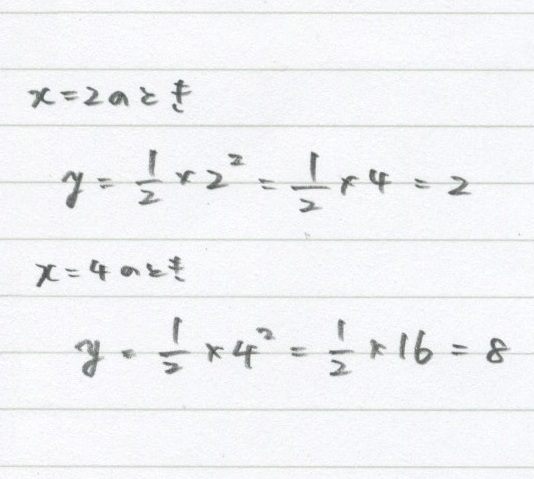 x=2のとき
y = 1/2 × 2² = 1/2 × 4 = 2
x=4のとき
y = 1/2 × 4² = 1/2 × 16 = 8